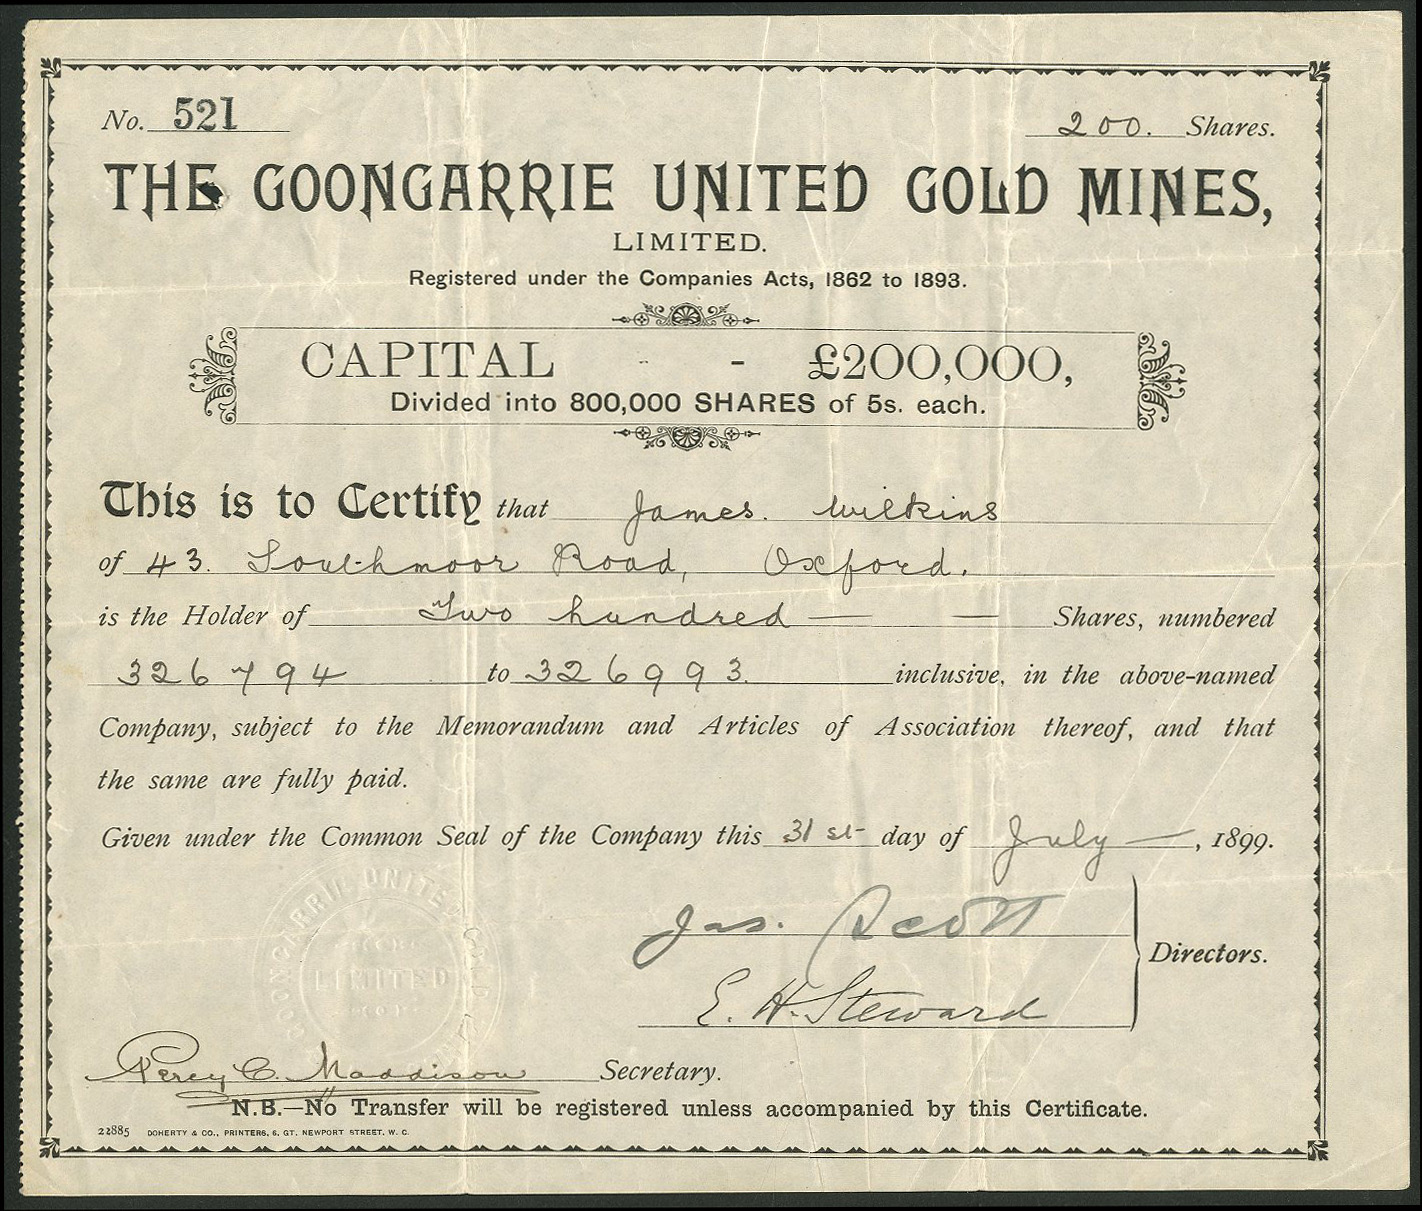 No. 521 200. Shares.
THE GOONGARRIE UNITED GOLD MINES,
LIMITED.
Registered under the Companies Acts, 1862 to 1893.
CAPITAL - - £200,000,
Divided into 800,000 SHARES of 5s. each.
This is to Certify that James. Wilkins
of 43. Southmoor Road, Oxford.
is the Holder of Two hundred — — Shares, numbered
326794 to 326993. inclusive, in the above-named
Company, subject to the Memorandum and Articles of Association thereof, and that
the same are fully paid.
Given under the Common Seal of the Company this 31st day of July —, 1899.
GOONGARRIE UNITED GOLD
LIMITED
Jas. Scott
Directors.
E. H. Steward
Percy C. Maddison Secretary.
N.B.—No Transfer will be registered unless accompanied by this Certificate.
22885 DOHERTY & CO., PRINTERS, 6. GT. NEWPORT STREET, W. C.